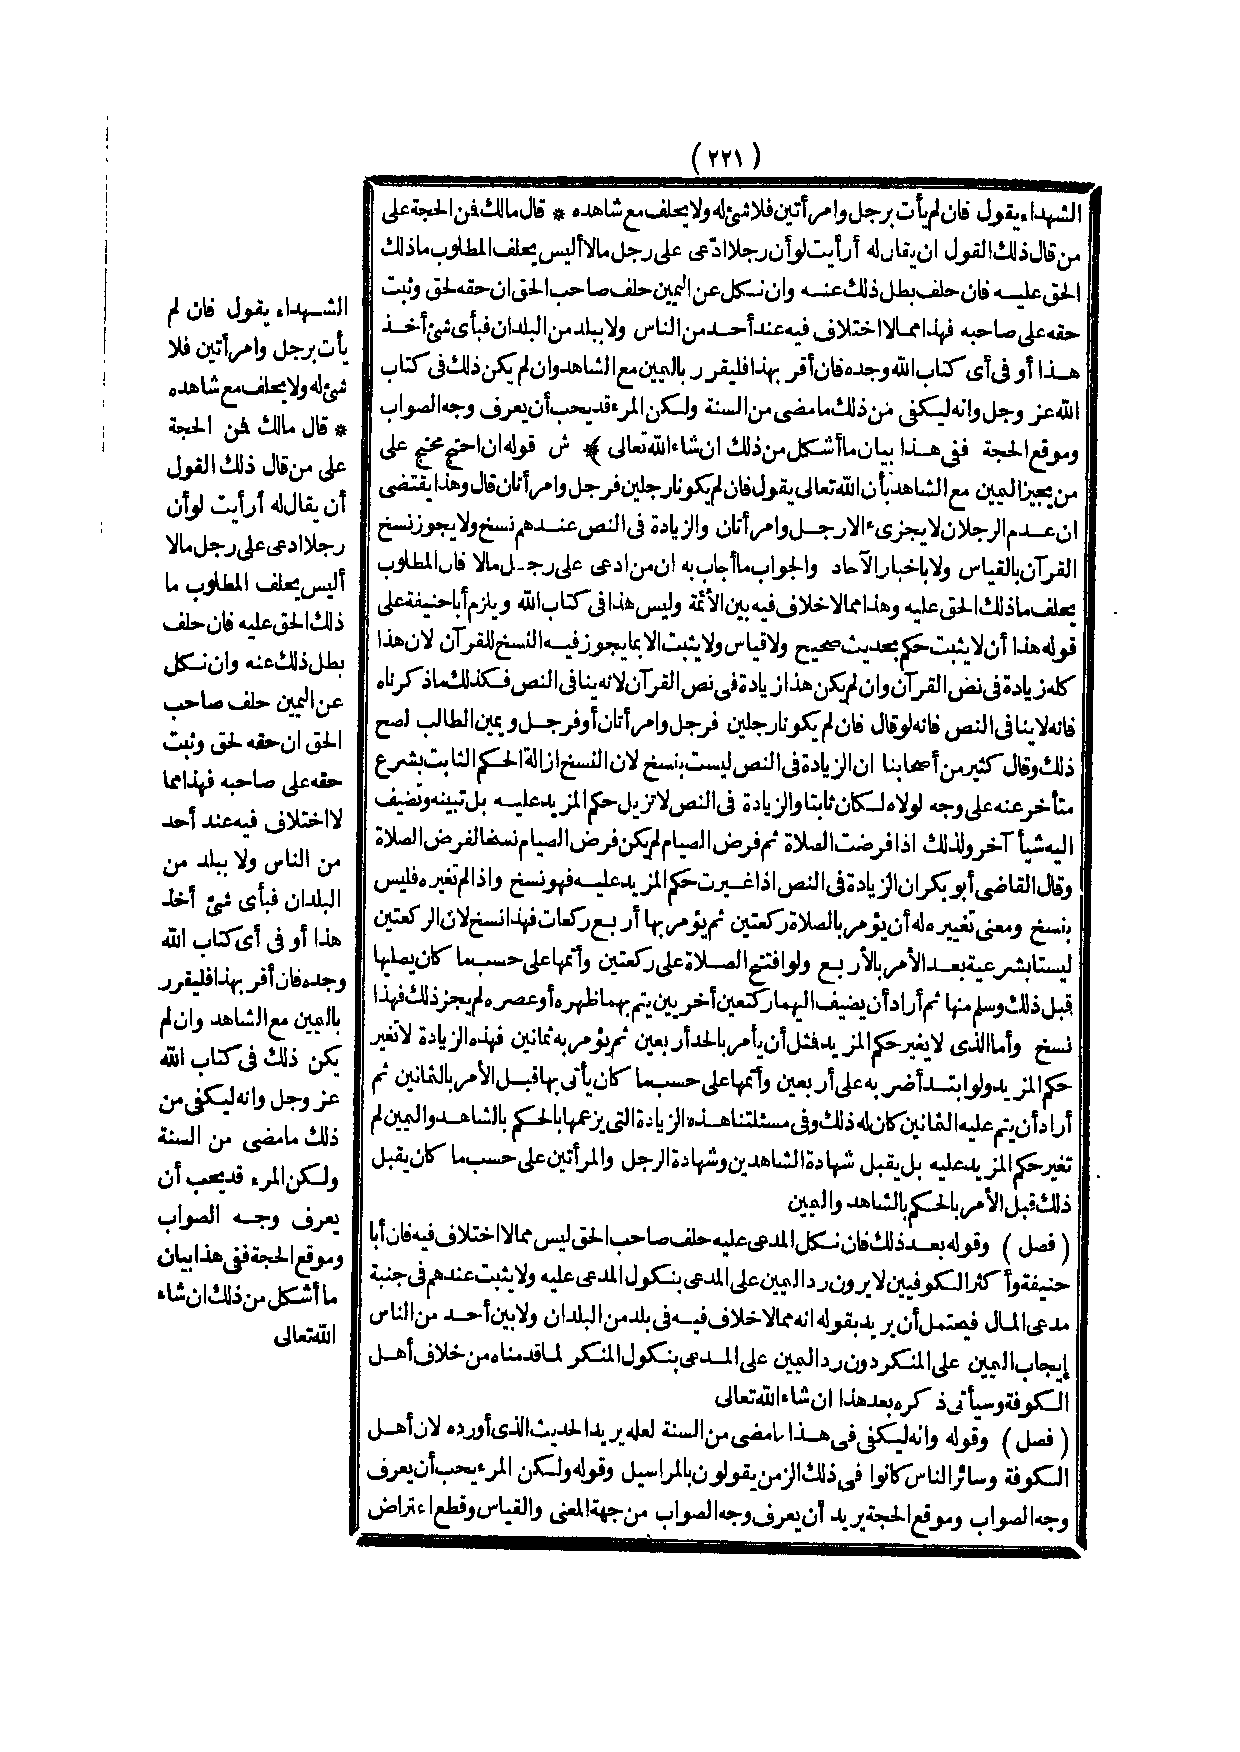 (٢٢١)
الشهداء يقول فان لم يأت برجل وامرأتين فلا شئ له ولا يحلف مع شاهده * قال مالك فمن الحجة على
من قال ذلك القول ان يقال له أرأيت لو أن رجلا ادّعى على رجل مالا أليس يحلف المطلوب ما ذلك
الحق عليه فان حلف بطل ذلك عنه وان نكل عن اليمين حلف صاحب الحق ان حقه لحق وثبت
حقه على صاحبه فهذا مما لا اختلاف فيه عند أحد من الناس ولا ببلد من البلدان فبأى شئ أخذ
هذا أو فى أى كتاب الله وجده فان أقر بهذا فليقرر باليمين مع الشاهد وان لم يكن ذلك فى كتاب
الله عز وجل وانه ليكفى من ذلك ما مضى من السنة ولكن المرء قد يحب أن يعرف وجه الصواب
وموقع الحجة ففى هذا بيان ما أشكل من ذلك ان شاء الله تعالى ﴾ ش قوله ان احتج محتج على
من يجيز اليمين مع الشاهد بأن الله تعالى يقول فان لم يكونا رجلين فرجل وامرأتان قال وهذا يقتضى
ان عدم الرجلان لا يجزىء الا رجل وامرأتان والزيادة فى النص عندهم نسخ ولا يجوز نسخ
القرآن بالقياس ولا باخبار الآحاد والجواب ما أجاب به ان من ادعى على رجل مالا فان المطلوب
يحلف ما ذلك الحق عليه وهذا مما لا خلاف فيه بين الأئمة وليس هذا فى كتاب الله ويلزم أبا حنيفة على
قوله هذا أن لا يثبت حكم بحديث صحيح ولا قياس ولا يثبت الا بما يجوز فيه النسخ للقرآن لان هذا
كله زيادة فى نص القرآن وان لم يكن هذا زيادة فى نص القرآن لانه ينافى النص فكذلك ما ذكرناه
فانه لا ينافى النص فانه لو قال فان لم يكونا رجلين فرجل وامرأتان أو فرجل ويمين الطالب لصح
ذلك وقال كثير من أصحابنا ان الزيادة فى النص ليست بنسخ لان النسخ ازالة الحكم الثابت بشرع
متأخر عنه على وجه لولاه لكان ثابتا والزيادة فى النص لا تزيل حكم المزيد عليه بل تبينه وتضيف
اليه شيأ آخر ولذلك اذا فرضت الصلاة ثم فرض الصيام لم يكن فرض الصيام نسخا لفرض الصلاة
وقال القاضى أبو بكر ان الزيادة فى النص اذا غيرت حكم المزيد عليه فهو نسخ واذا لم تغيره فليس
بنسخ ومعنى تغييره له أن يؤمر بالصلاة ركعتين ثم يؤمر بها أربع ركعات فهذا نسخ لان الركعتين
ليستا بشرعية بعد الأمر بالأربع ولو افتتح الصلاة على ركعتين وأتمها على حسب ما كان يصليها
قبل ذلك وسلم منها ثم أراد أن يضيف اليهما ركعتين أخريين يتم بهما ظهره أو عصره لم يجز ذلك فهذا
نسخ وأما الذى لا يغير حكم المزيد فمثل أن يأمر بالحد أربعين ثم يؤمر به ثمانين فهذه الزيادة لا تغير
حكم المزيد ولو ابتدأ ضربه على أربعين وأتمها على حسب ما كان يأتى بها قبل الأمر بالثمانين ثم
أراد أن يتم عليه الثمانين كان له ذلك وفى مسئلتنا هذه الزيادة التى يزعمها بالحكم بالشاهد واليمين لم
تغير حكم المزيد عليه بل يقبل شهادة الشاهدين وشهادة الرجل والمرأتين على حسب ما كان يقبل
ذلك قبل الأمر بالحكم بالشاهد واليمين
( فصل ) وقوله بعد ذلك فان نكل المدعى عليه حلف صاحب الحق ليس مما لا اختلاف فيه فان أبا
حنيفة وأكثر الكوفيين لا يرون رد اليمين على المدعى بنكول المدعى عليه ولا يثبت عندهم فى جنبة
مدعى المال فيحتمل أن يريد بقوله انه مما لا خلاف فيه فى بلد من البلدان ولا بين أحد من الناس
إيجاب اليمين على المنكر دون رد اليمين على المدعى بنكول المنكر لما قدمناه من خلاف أهل
الكوفة وسيأتى ذكره بعد هذا ان شاء الله تعالى
( فصل ) وقوله وانه ليكفى فى هذا ما مضى من السنة لعله يريد الحديث الذى أورده لان أهل
الكوفة وسائر الناس كانوا فى ذلك الزمن يقولون بالمراسيل وقوله ولكن المرء يحب أن يعرف
وجه الصواب وموقع الحجة يريد أن يعرف وجه الصواب من جهة المعنى والقياس وقطع اعتراض
الشهداء يقول فان لم
يأت برجل وامرأتين فلا
شئ له ولا يحلف مع شاهده
* قال مالك فمن الحجة
على من قال ذلك القول
أن يقال له أرأيت لو أن
رجلا ادعى على رجل مالا
أليس يحلف المطلوب ما
ذلك الحق عليه فان حلف
بطل ذلك عنه وان نكل
عن اليمين حلف صاحب
الحق ان حقه لحق وثبت
حقه على صاحبه فهذا مما
لا اختلاف فيه عند أحد
من الناس ولا ببلد من
البلدان فبأى شئ أخذ
هذا أو فى أى كتاب الله
وجده فان أقر بهذا فليقرر
باليمين مع الشاهد وان لم
يكن ذلك فى كتاب الله
عز وجل وانه ليكفى من
ذلك ما مضى من السنة
ولكن المرء قد يحب أن
يعرف وجه الصواب
وموقع الحجة ففى هذا بيان
ما أشكل من ذلك ان شاء
الله تعالى